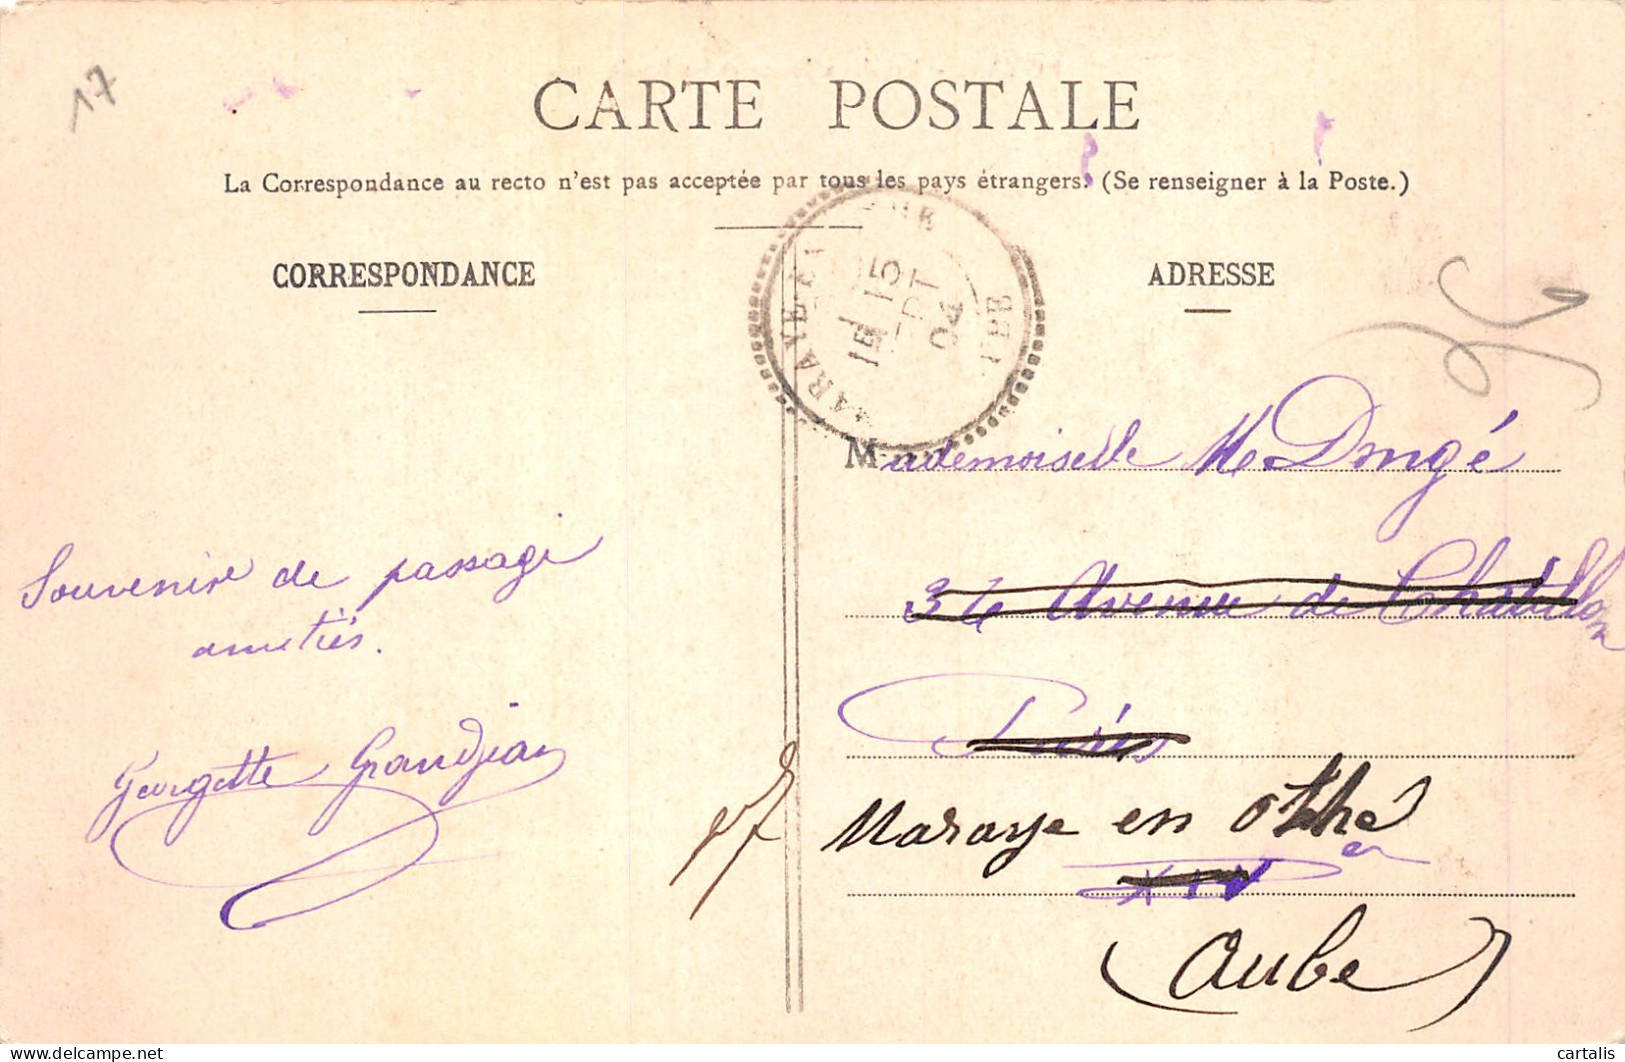 17
CARTE POSTALE
La Correspondance au recto n'est pas acceptée par tous les pays étrangers. (Se renseigner à la Poste.)
CORRESPONDANCE
ADRESSE
15
04
Mademoiselle M Dongé
36 Avenue de Chatillon
Paris
XIV
Maraye en Othe
(Aube)
Souvenir de passage
amitiés.
Georgette Grandjean
cartalis